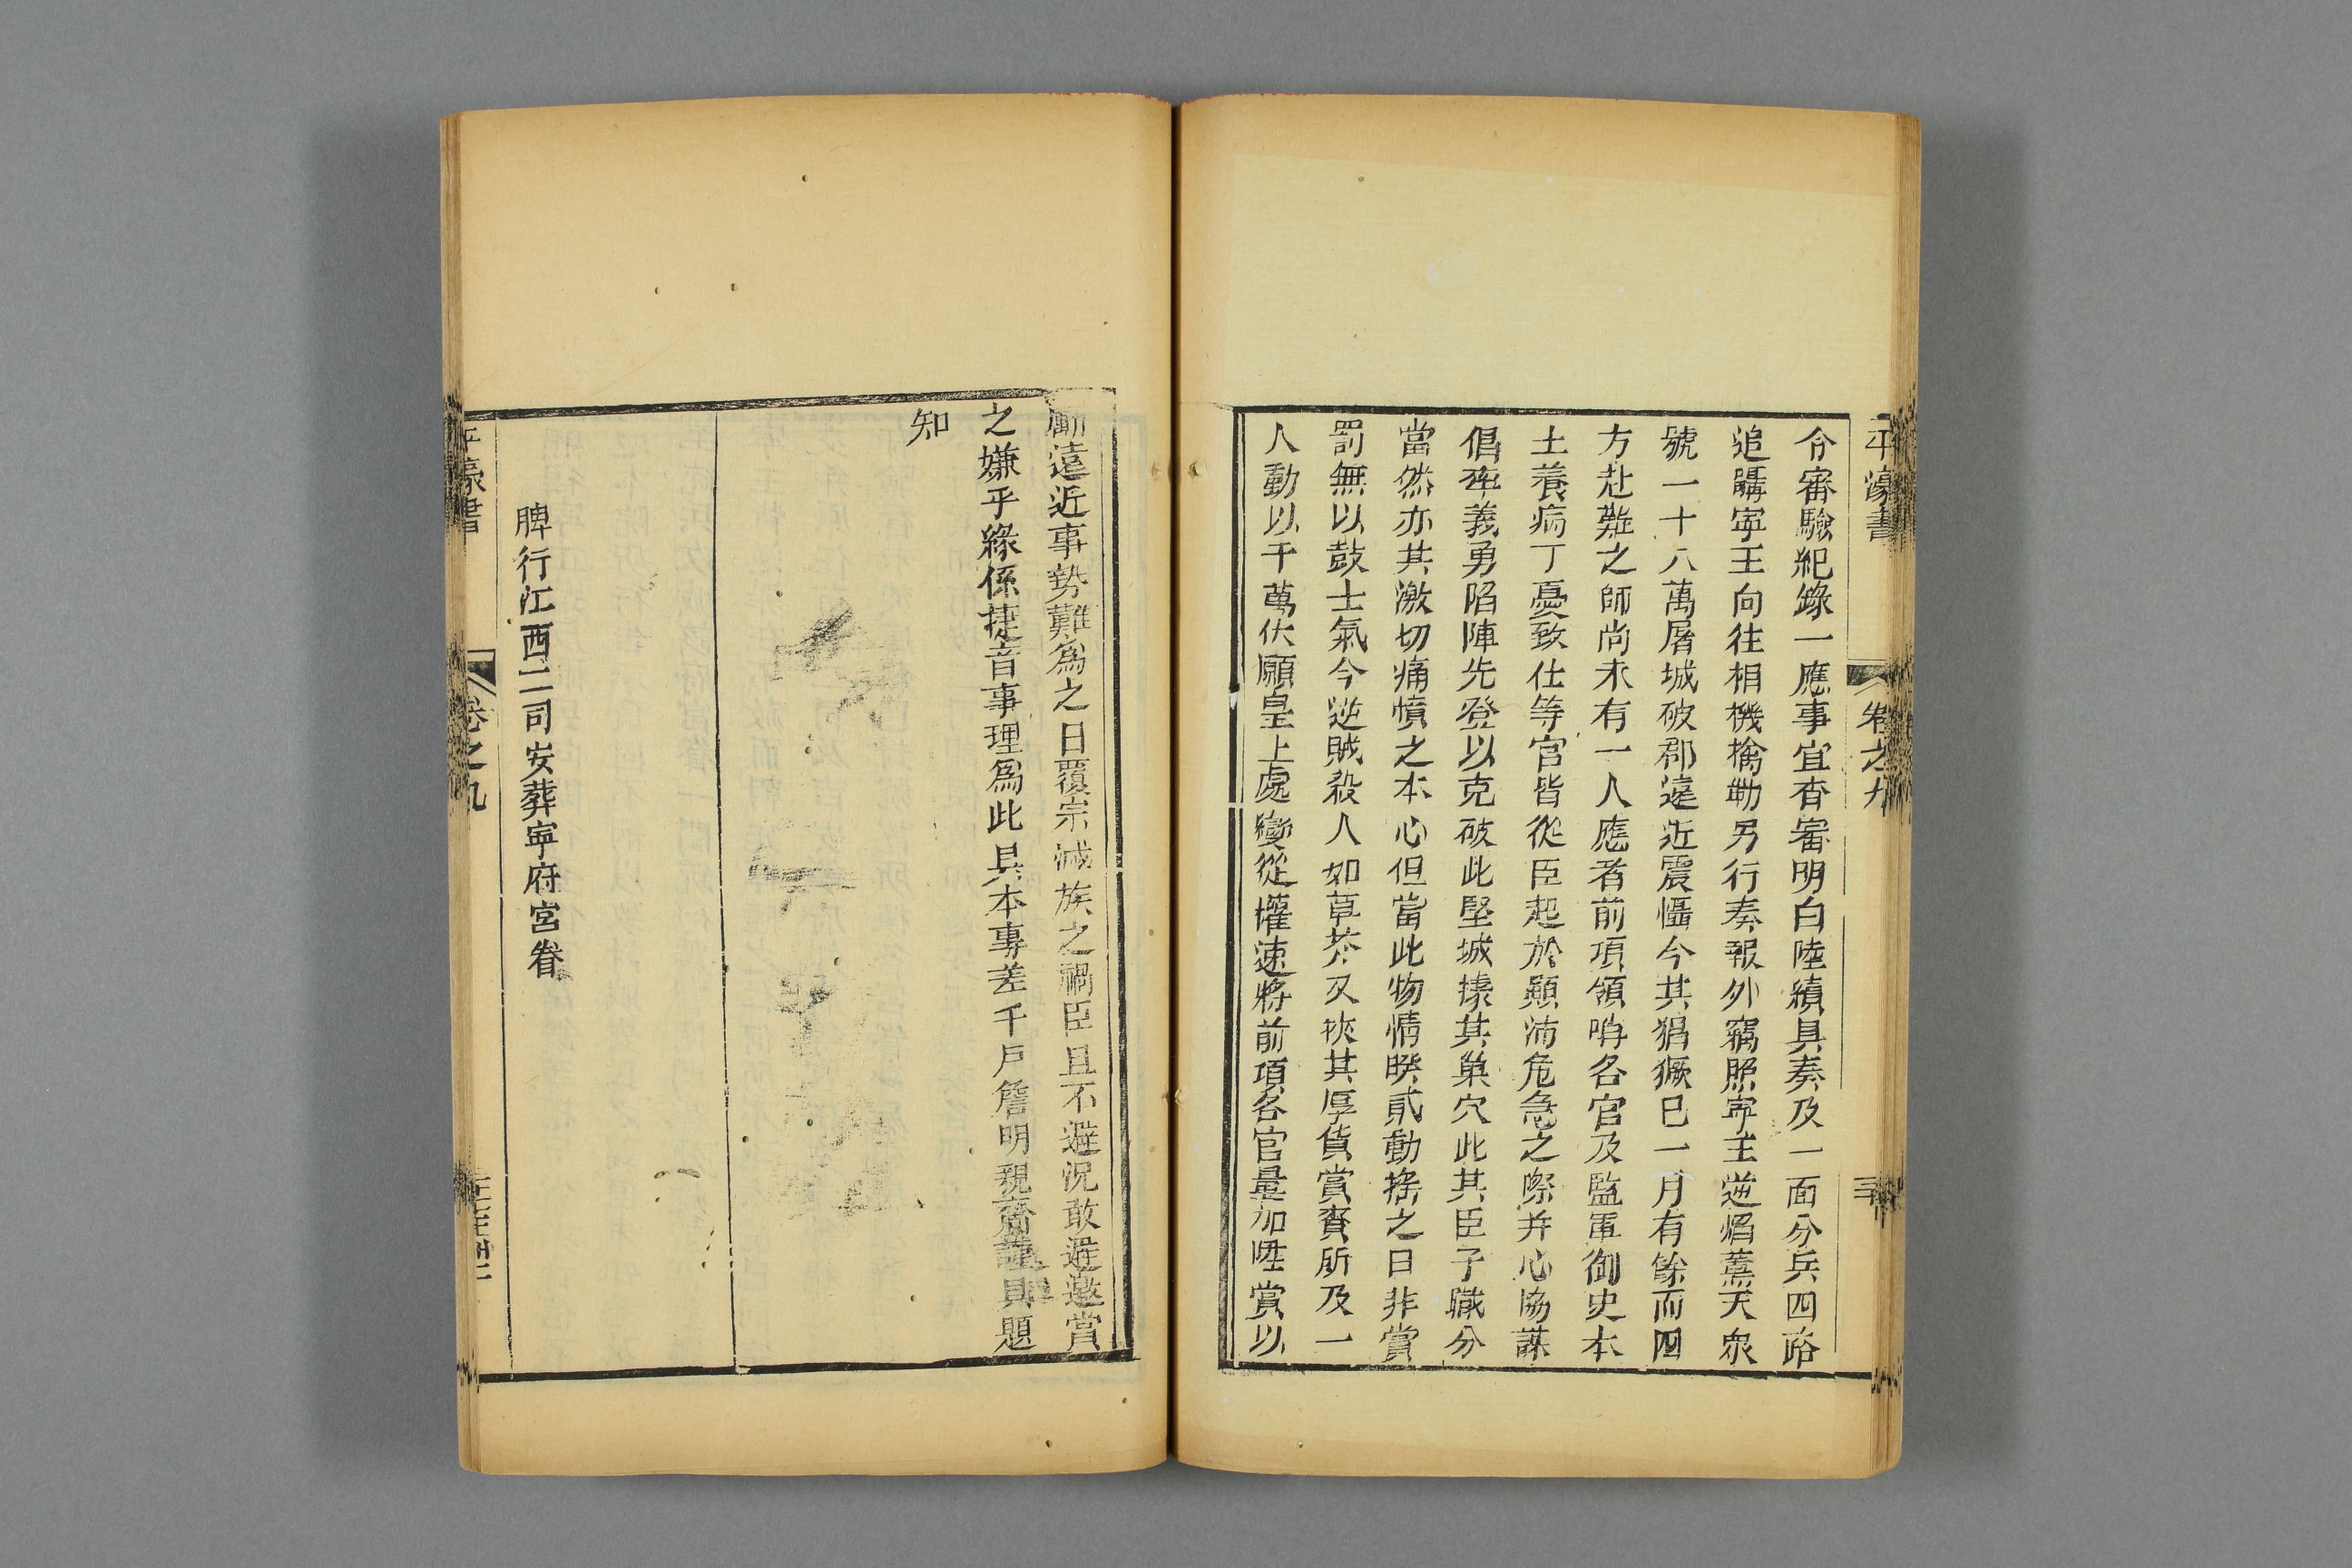 平濠書
卷之九
令審驗紀錄一應事宜查審明白陸續具奏及一面分兵四路
追躡寧王向往相機擒勦另行奏報外竊照寧王逆焰薰天衆
號一十八萬屠城破郡遠近震懾今其猖獗已一月有餘而四
方赴難之師尚未有一人應者前項領哨各官及監軍御史本
土養病丁憂致仕等官皆從臣起於顛沛危急之際并心協謀
倡率義勇陷陣先登以克破此堅城據其巢穴此其臣子職分
當然亦其激切痛憤之本心但當此物情睽貳動搖之日非賞
罰無以鼓士氣今逆賊殺人如草芥又挾其厚貨賞賚所及一
人動以千萬伏願皇上處變從權速將前項各官量加陞賞以
勵遠近事勢難爲之日覆宗滅族之禍臣且不避況敢避邀賞
之嫌乎緣係捷音事理爲此具本專差千戶詹明親齎謹具題
知
牌行江西二司安葬寧府宮眷
平濠書
卷之九